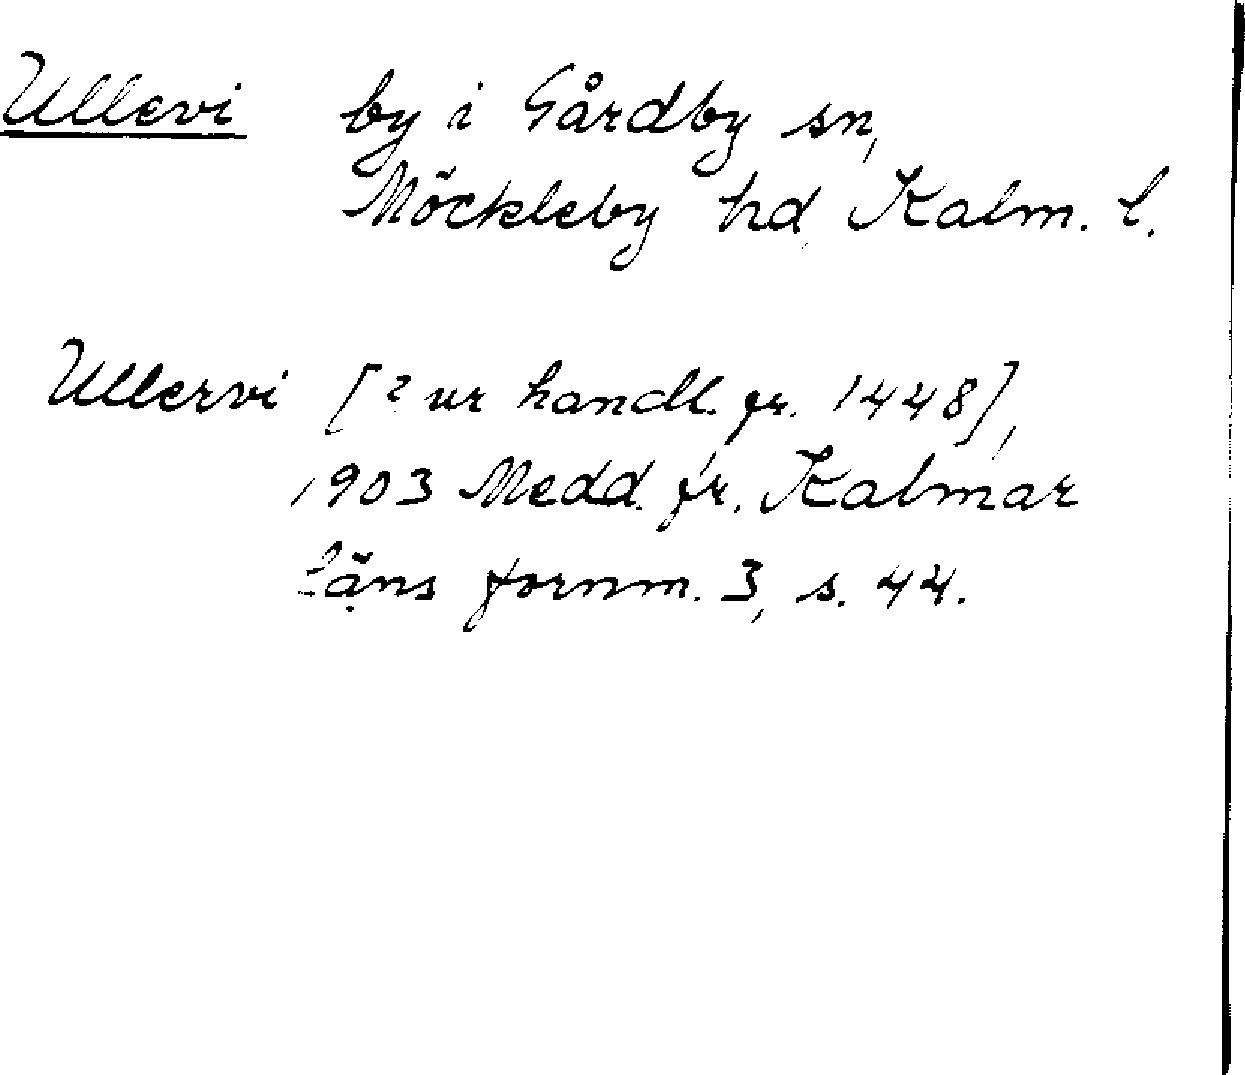 Ullevi by i Gårdby sn,
Möckleby hd, Kalm. l.
Ullervi [? ur handl. fr. 1448],
1903 Medd. fr. Kalmar
läns fornm. 3, s. 44.